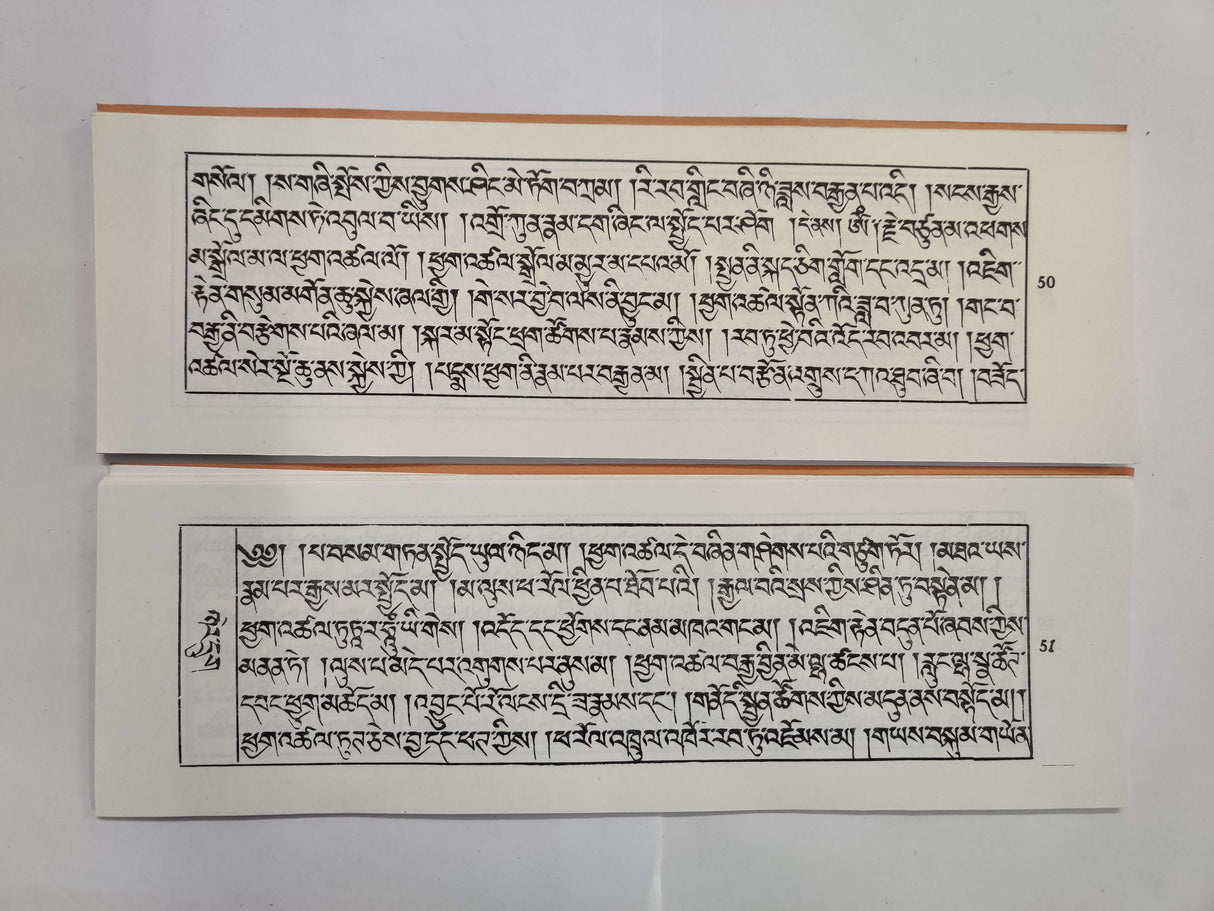 གསོལ། །ས་གཞི་སྤོས་ཀྱིས་བྱུགས་ཤིང་མེ་ཏོག་བཀྲམ། །རི་རབ་གླིང་བཞི་ཉི་ཟླས་བརྒྱན་པ་འདི། །སངས་རྒྱས་
ཞིང་དུ་དམིགས་ཏེ་འབུལ་བ་ཡིས། །འགྲོ་ཀུན་རྣམ་དག་ཞིང་ལ་སྤྱོད་པར་ཤོག །དེ་ནས། ཨོཾ། རྗེ་བཙུན་མ་འཕགས་
མ་སྒྲོལ་མ་ལ་ཕྱག་འཚལ་ལོ། །ཕྱག་འཚལ་སྒྲོལ་མ་མྱུར་མ་དཔའ་མོ། །སྤྱན་ནི་སྐད་ཅིག་གློག་དང་འདྲ་མ། །འཇིག་
རྟེན་གསུམ་མགོན་ཆུ་སྐྱེས་ཞལ་གྱི། །གེ་སར་བྱེ་བ་ལས་ནི་བྱུང་མ། །ཕྱག་འཚལ་སྟོན་ཀའི་ཟླ་བ་ཀུན་ཏུ། །གང་བ་
བརྒྱ་ནི་བརྩེགས་པའི་ཞལ་མ། །སྐར་མ་སྟོང་ཕྲག་ཚོགས་པ་རྣམས་ཀྱིས། །རབ་ཏུ་ཕྱེ་བའི་འོད་རབ་འབར་མ། །ཕྱག་
འཚལ་སེར་སྔོ་ཆུ་ནས་སྐྱེས་ཀྱི། །པདྨས་ཕྱག་ནི་རྣམ་པར་བརྒྱན་མ། །སྦྱིན་པ་བརྩོན་འགྲུས་དཀའ་ཐུབ་ཞི་བ། །བཟོད་
50
༄༅། །པ་བསམ་གཏན་སྤྱོད་ཡུལ་ཉིད་མ། །ཕྱག་འཚལ་དེ་བཞིན་གཤེགས་པའི་གཙུག་ཏོར། །མཐའ་ཡས་
རྣམ་པར་རྒྱས་མར་སྤྱོད་མ། །མ་ལུས་ཕ་རོལ་ཕྱིན་པ་ཐོབ་པའི། །རྒྱལ་བའི་སྲས་ཀྱིས་ཤིན་ཏུ་བསྟེན་མ། །
ཕྱག་འཚལ་ཏུཏྟཱ་ར་ཧཱུྃ་ཡི་གེས། །འདོད་དང་ཕྱོགས་དང་ནམ་མཁའ་གང་མ། །འཇིག་རྟེན་བདུན་པོ་ཞབས་ཀྱིས་
མནན་ཏེ། །ལུས་པ་མེད་པར་འགུགས་པར་ནུས་མ། །ཕྱག་འཚལ་བརྒྱ་བྱིན་མེ་ལྷ་ཚངས་པ། །རླུང་ལྷ་སྣ་ཚོགས་
དབང་ཕྱུག་མཆོད་མ། །འབྱུང་པོ་རོ་ལངས་དྲི་ཟ་རྣམས་དང་། །གནོད་སྦྱིན་ཚོགས་ཀྱིས་མདུན་ནས་བསྟོད་མ། །
ཕྱག་འཚལ་ཏྲཊ་ཅེས་བྱ་དང་ཕཊ་ཀྱིས། །ཕ་རོལ་འཁྲུལ་འཁོར་རབ་ཏུ་འཇོམས་མ། །གཡས་བསྐུམ་གཡོན་
51